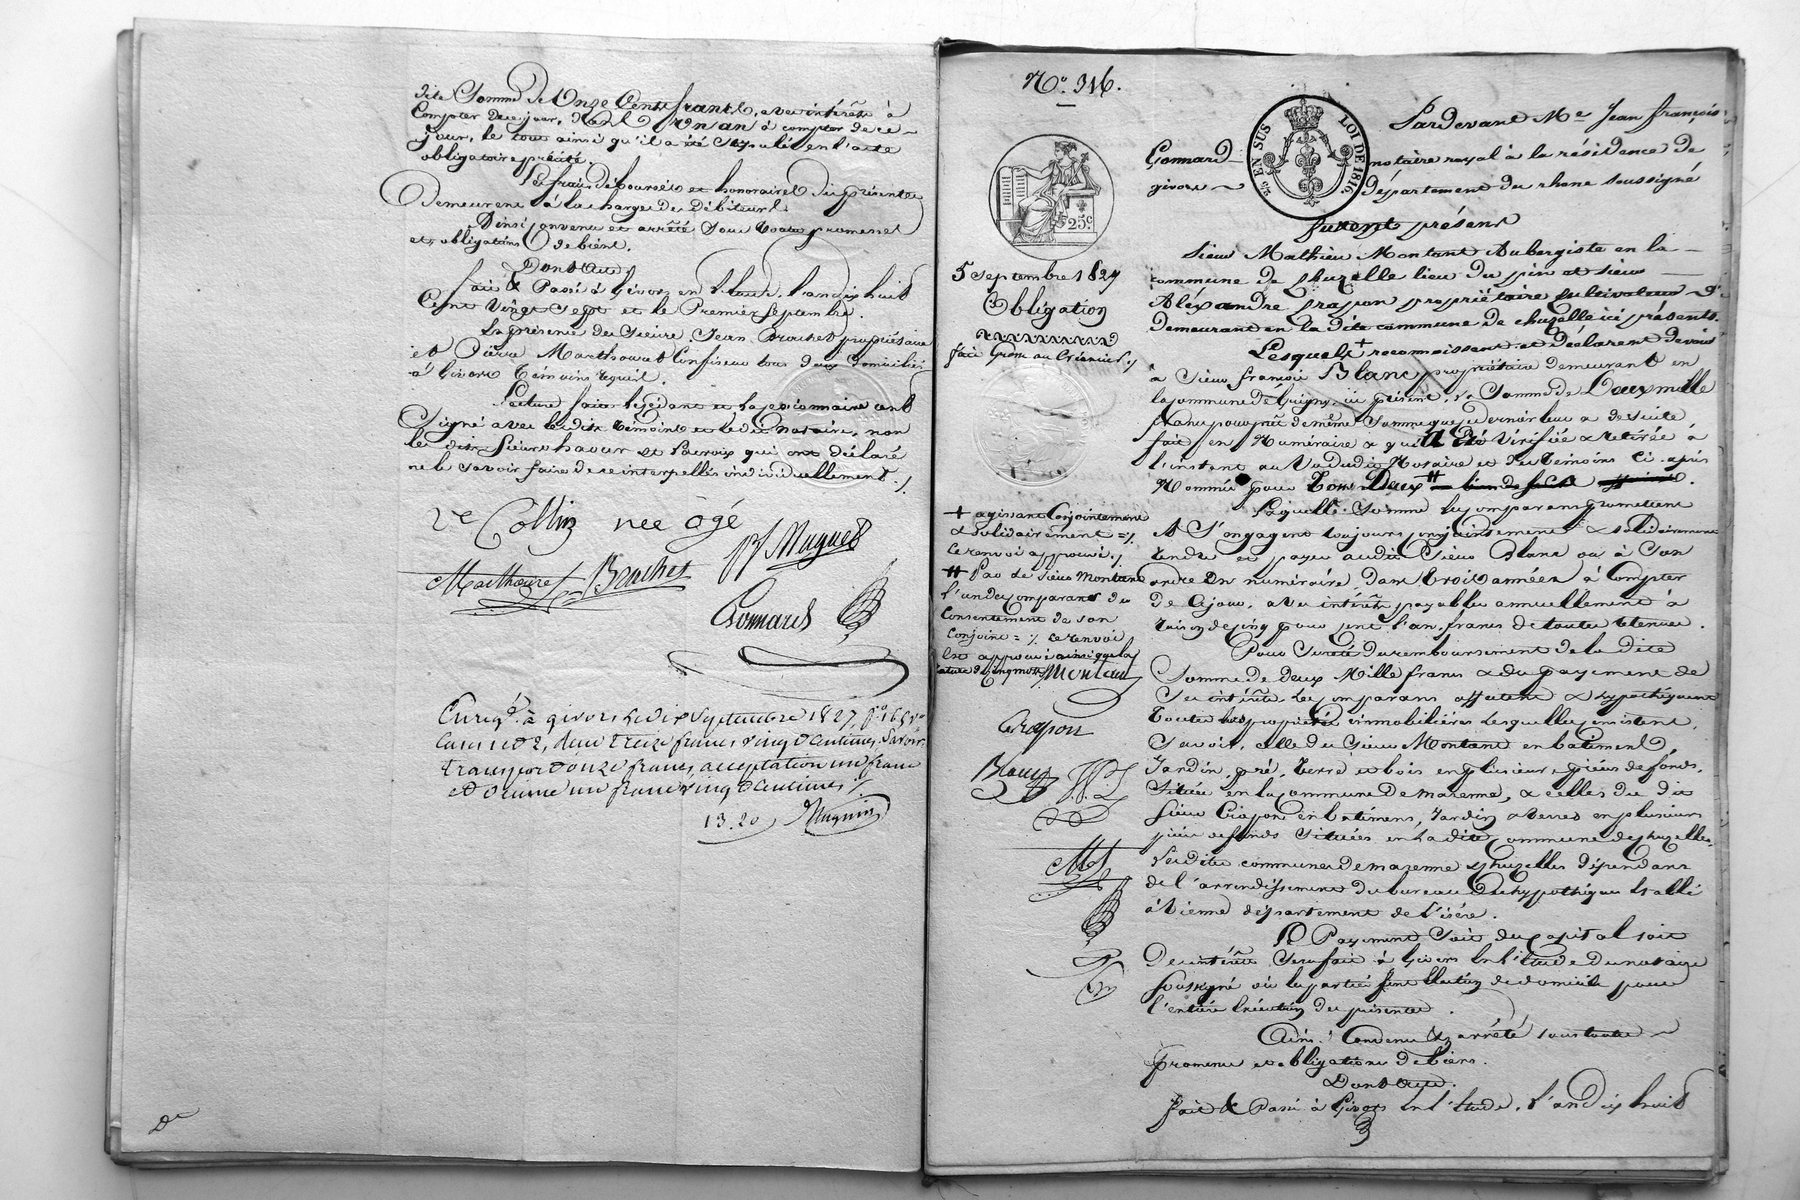 dite Somme de Onze Cents francs, avec intérêts à
Compter de ce jour, dans Un an à compter de ce
jour, le tout ainsi qu'il a été stipulé en l'acte
obligatoire précité.
Les frais déboursés et honoraires des présentes
Demeurent à la charge des Débiteurs.
Ainsi convenu et arrêté sous toutes promesses
et obligations de biens.
Dont acte
fait & Passé à Givors en l'étude, l'an dix huit
Cent Vingt Sept et le Premier Septembre.
En présence des Sieurs Jean Brachet propriétaire
et Pierre Marthouret Confiseur tous deux domiciliés
à Givors témoins requis.
Lecture faite le cédant et la cessionnaire ont
Signé avec lesdits témoins et ledit Notaire, non
les dits Sieurs et Lacroix qui ont déclaré
ne le savoir faire de ce interpellés individuellement ./.
Ve Collin née ogé
Muguet
Marthouret Brachet
Gonnard
Enregé. à givors le dix Septembre 1827, fo. 168 vo
Case 1 et 2, reçu treize francs vingt Centimes, Savoir:
transport onze francs, acceptation un franc
et décime un franc vingt Centimes ./.
13.20
De
No. 316.
Pardevant Me Jean françois
EN SUS LOI DE 1816.
Gonnard notaire royal à la résidence de
givors département du rhone soussigné
furent présens
25c.
Sieur Mathieu Montant Aubergiste en la
5 septembre 1827
commune de chuzelle lieu du pin et sieur
Obligation
Aléxandre Crapon propriétaire cultivateur
Demeurant en la dite commune de chuzelle ici présents.
fait Grosse au Créancier ./.
Lesquels + reconnoissent et Déclarent devoir
à Sieur françois Blanc propriétaire demeurant en
la Commune de ici présent, la Somme de Deux mille
francs pour prêt de même Somme que ce dernier leur a de suite
fait en Numéraire & qui a été Vérifiée & retirée à
l'instant au Vu dudit Notaire et des témoins Ci-après
Nommés pour tous Deux #
Laquelle Somme les comparans promettent
+ agissant Conjointement
& solidairement =/.
Ce renvoi approuvé ./.
& S'engagent toujours conjointement & solidairement
rendre et payer audit Sieur Blanc ou à Son
# Par le Sieur Montant
l'un des comparans du
Consentement de son
Conjoint =/. Ce renvoi
est approuvé ainsi que la
rature de cinq mots Montant
ordre En numéraire Dans trois années à Compter
De Ce jour, avec intérêts payables annuellement à
raison de cinq pour cent l'an, francs de toutes retenues.
Pour Sureté du remboursement de la dite
Somme de deux Mille francs & du payement de
Ses intérêts les comparans affectent & hypothéquent
toutes les propriétés immobilières lesquelles consistent,
Crapon
Savoir, celle du Sieur Montant en batiment,
Jardin, pré, terre et bois en plusieurs pièces de fonds,
Situés en la commune de marenne, & celles du dit
Sieur Crapon en batimens, Jardin & terres en plusieurs
pièces de fonds situées en la dite commune de chuzelles,
Lesdites communes de marenne & chuzelles dépendans
de l'arrondissement du bureau des hypothèques établi
à Vienne département de l'isére.
Le Payement Soit du capital soit
Des intérêts Sera fait à Givors en l'étude du notaire
Soussigné où les parties font élection de domicile pour
l'entière exécution des présentes.
Ainsi Convenu & arrêté sous toutes
promesses et obligations de biens.
Dont acte.
fait & Passé à Givors en l'étude, l'an dix huit